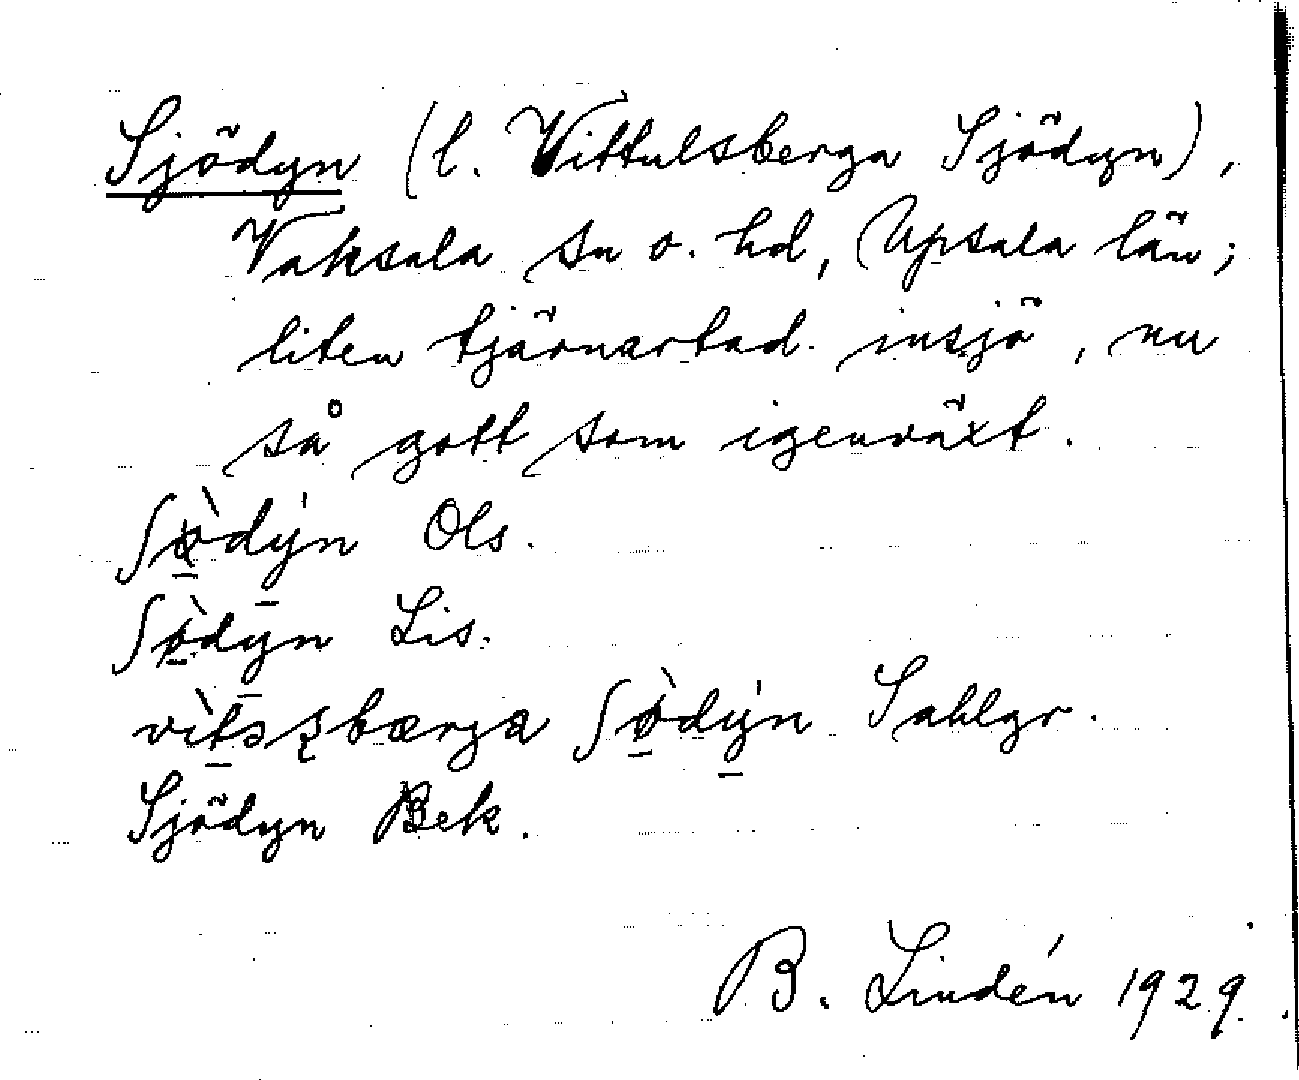 Sjödyn (l. Vittulsberga Sjödyn),
Vaksala sn o. hd, Upsala län;
liten tjärnartad insjö, nu
så gott som igenväxt.
ʃø̠̀dy̠̍n Ols.
ʃø̠̀dy̠n Lis.
Sahlgr.
Sjödyn Bek.
B. Lindén 1929.